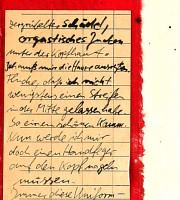 zergrübelter Schädel
orgastisches Zucken
unter der Kopfhaut
Ich muß mir die Haare ausreißen
daß ich nicht
wenigstens einen Streifen
in der Mitte gelassen habe
So einen schönen Kamm.
Nun werde ich mir
doch einen Handfeger
auf den Kopf nageln
müssen
Immer diese Uniform-